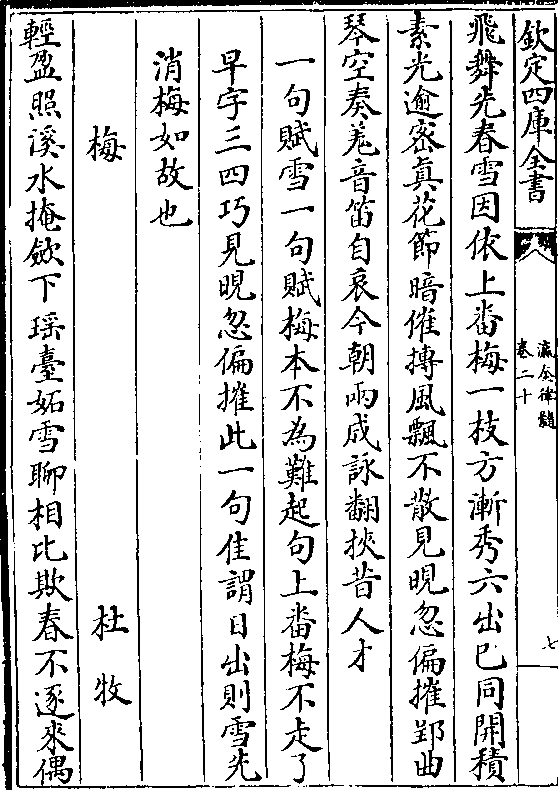 欽定四庫全書
瀛奎律髓
卷二十
七
飛舞先春雪因依上番梅一枝方漸秀六出已同開積
素光逾密真花節暗催摶風飄不散見晛忽偏摧郢曲
琴空奏羌音笛自哀今朝兩成詠翻挾昔人才
一句賦雪一句賦梅本不為難起句上番梅不走了
早字三四巧見晛忽偏摧此一句佳謂日出則雪先
消梅如故也
梅 杜牧
輕盈照溪水掩歛下瑶臺妬雪聊相比欺春不逐來偶